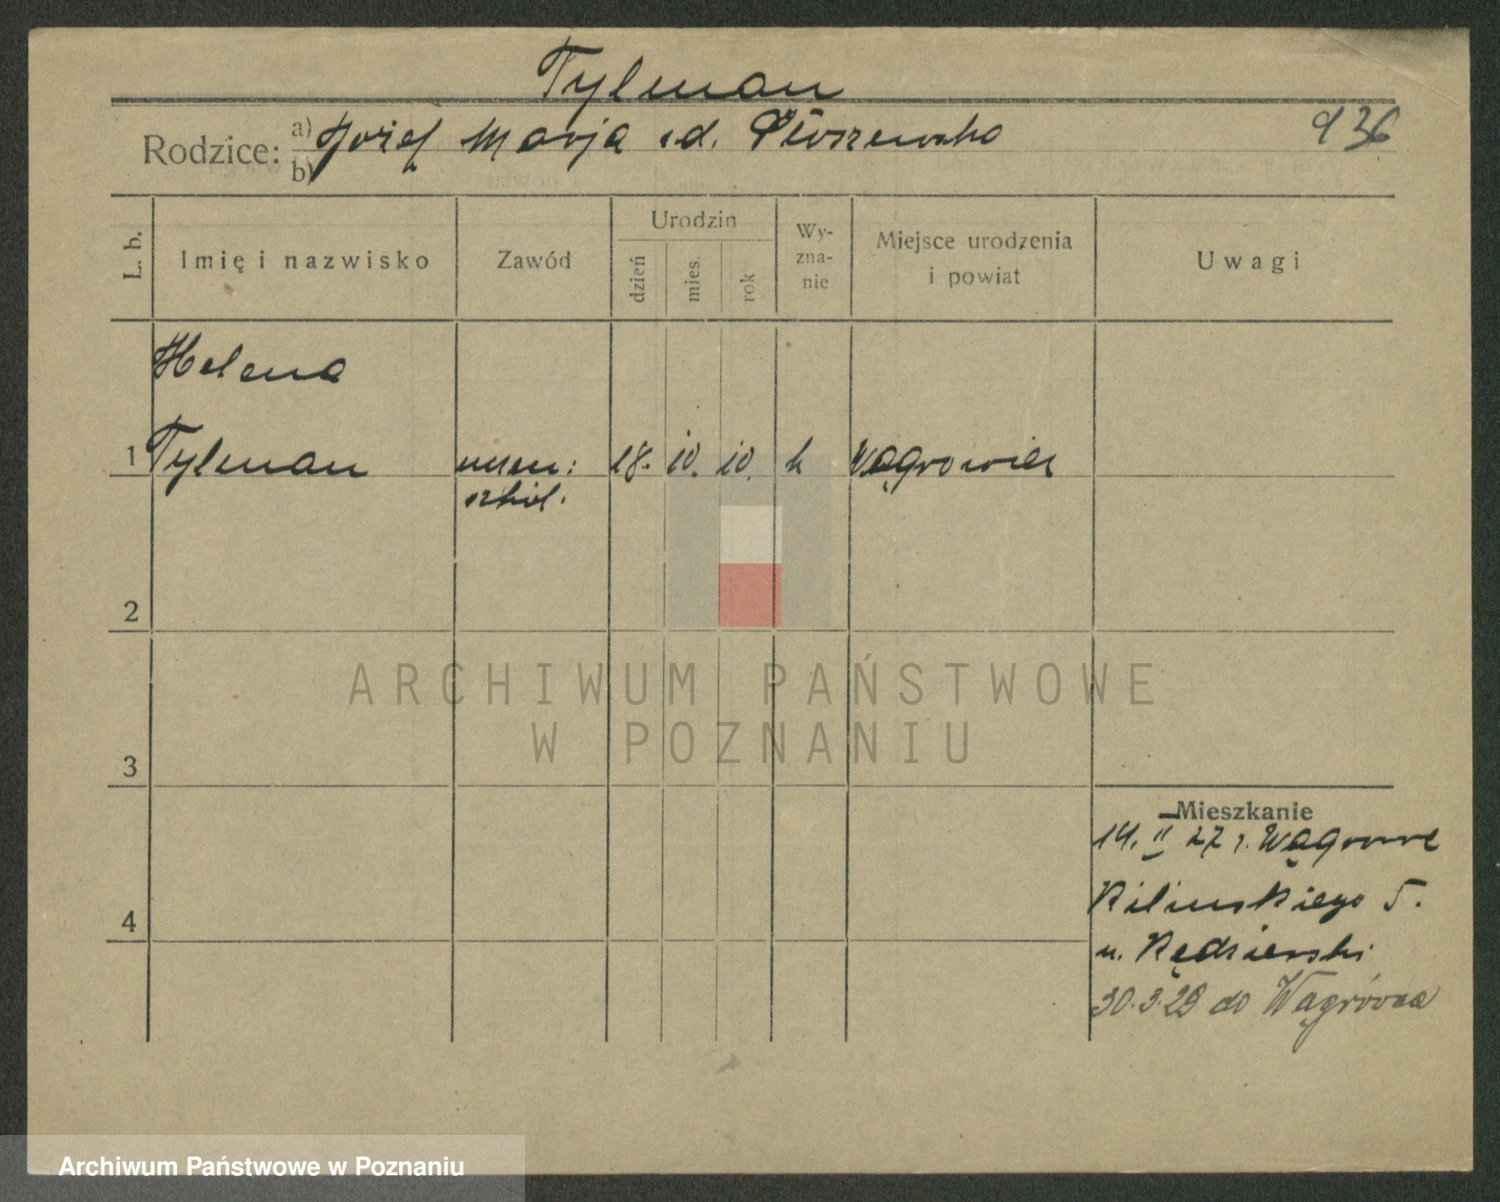 Tylman
Rodzice: a) Józef Marja
b)
936
L. b.
Imię i nazwisko
Zawód
Urodzin
dzień
mies.
rok
Wy-
zna-
nie
Miejsce urodzenia
i powiat
Uwagi
Helena
1 Tylman uczen: 18. 10. 10. k Wągrowiec
szkol.
2
ARCHIWUM PAŃSTWOWE
W POZNANIU
3
Mieszkanie
14. II 27 z.
Kilinskiego 5.
4
u. Kędzierski
30.3.29 do Wągrówca
Archiwum Państwowe w Poznaniu